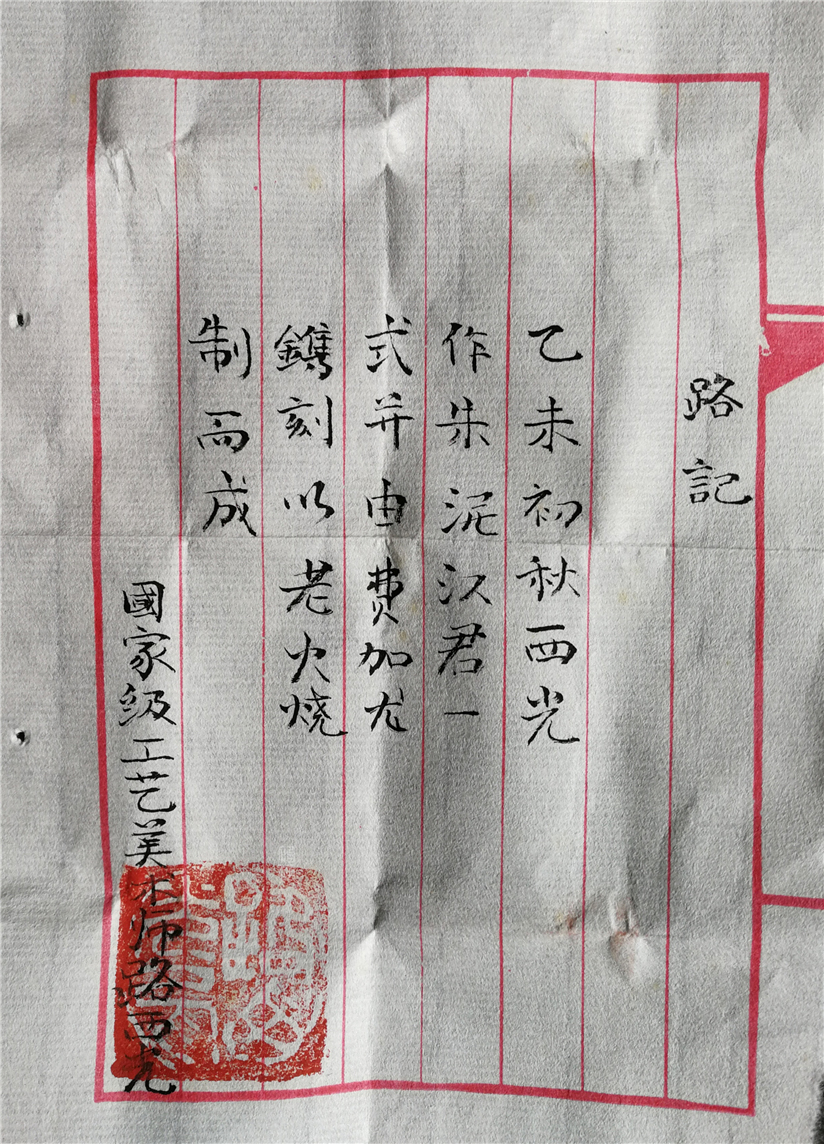 路記
乙未初秋西光
作朱泥汉君一
式并由费加尤
鐫刻以老火烧
制而成
國家级工艺美术师路西光